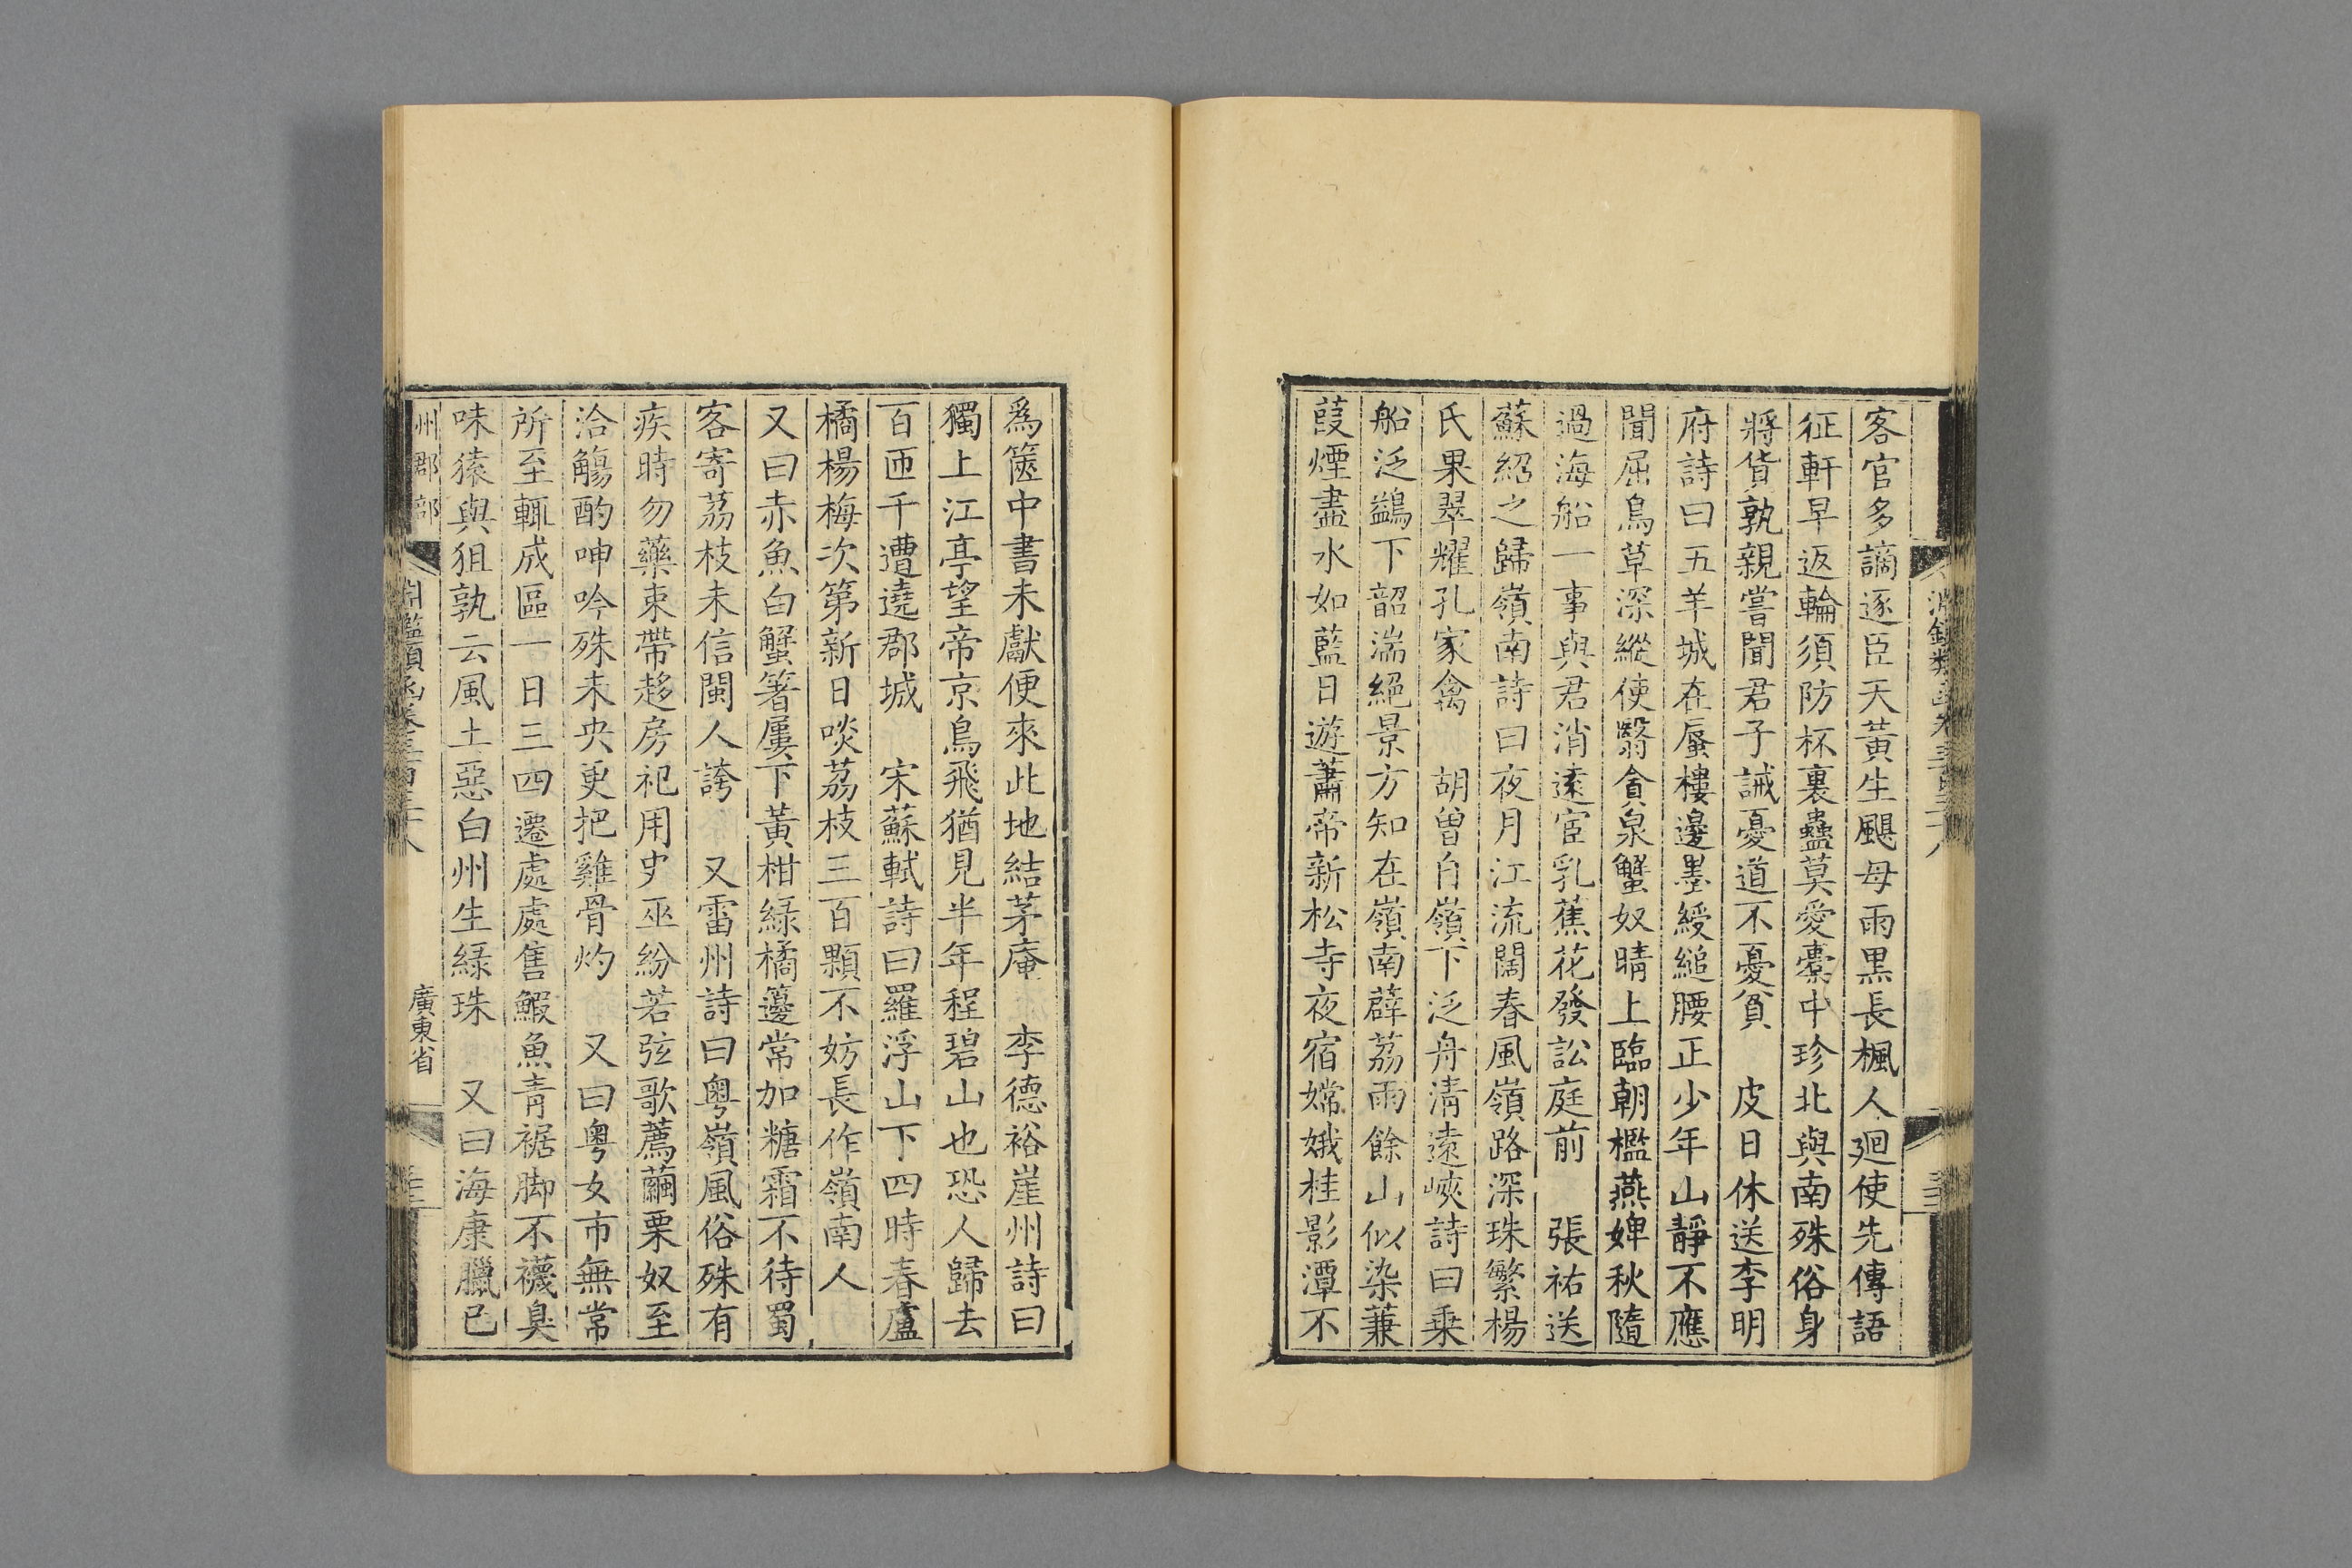 客官多謫逐臣天黃生颶母雨黑長楓人廻使先傳語
征軒早返輪須防杯裏蠱莫愛橐中珍北與南殊俗身
將貨孰親嘗聞君子誡憂道不憂貧　皮日休送李明
府詩曰五羊城在蜃樓邊墨綬縋腰正少年山靜不應
聞屈鳥草深縱使翳貪泉蟹奴晴上臨朝檻燕婢秋隨
過海船一事與君消遠宦乳蕉花發訟庭前　張祐送
蘇紹之歸嶺南詩曰夜月江流闊春風嶺路深珠繁楊
氏果翠耀孔家禽　胡曾自嶺下泛舟淸遠峽詩曰乗
船泛鷁下韶湍絕景方知在嶺南薜荔雨餘山似染蒹
葭煙盡水如藍日遊蕭帝新松寺夜宿嫦娥桂影潭不
爲篋中書未獻便來此地結茅庵　李德裕崖州詩曰
獨上江亭望帝京鳥飛猶見半年程碧山也恐人歸去
百匝千遭遶郡城　宋蘇軾詩曰羅浮山下四時春盧
橘楊梅次第新日啖荔枝三百顆不妨長作嶺南人
又曰赤魚白蟹箸屢下黃柑綠橘籩常加糖霜不待蜀
客寄荔枝未信閩人誇　又雷州詩曰粵嶺風俗殊有
疾時勿藥束帶趍房祀用史巫紛若弦歌薦繭栗奴至
洽觴酌呻吟殊未央更把雞骨灼　又曰粵女市無常
所至輒成區一日三四遷處處售鰕魚青裾脚不襪臭
味猿與狙孰云風土惡白州生綠珠　又曰海康臘已
州郡部
廣東省